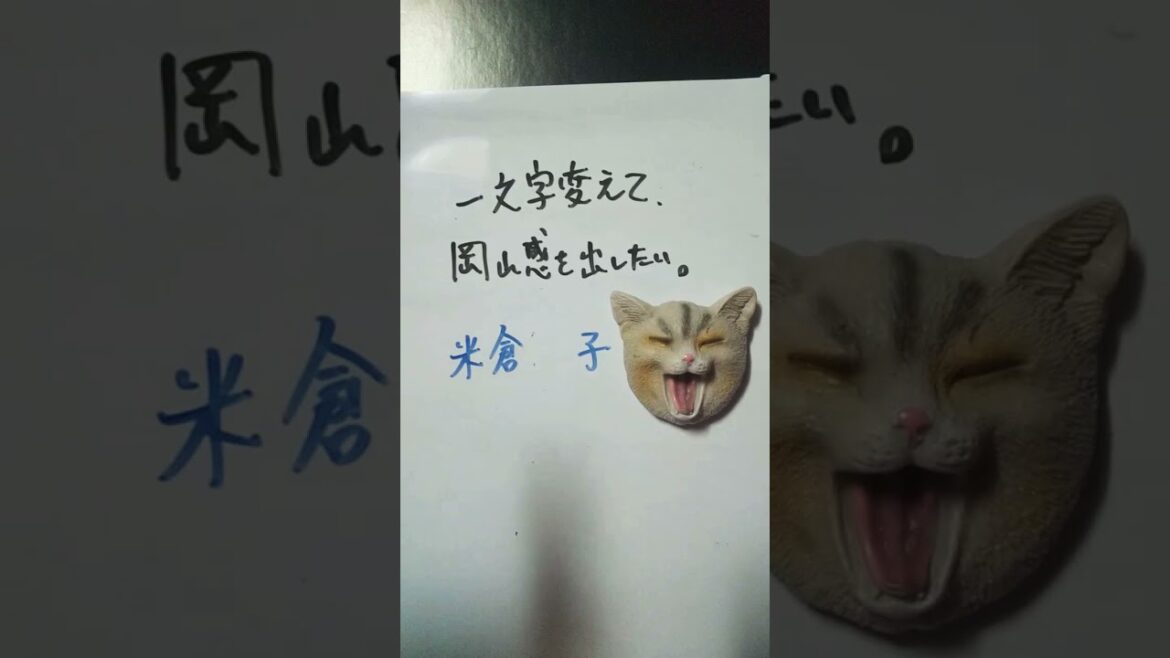 一文字変えて、
岡山感を出したい。
米倉 子